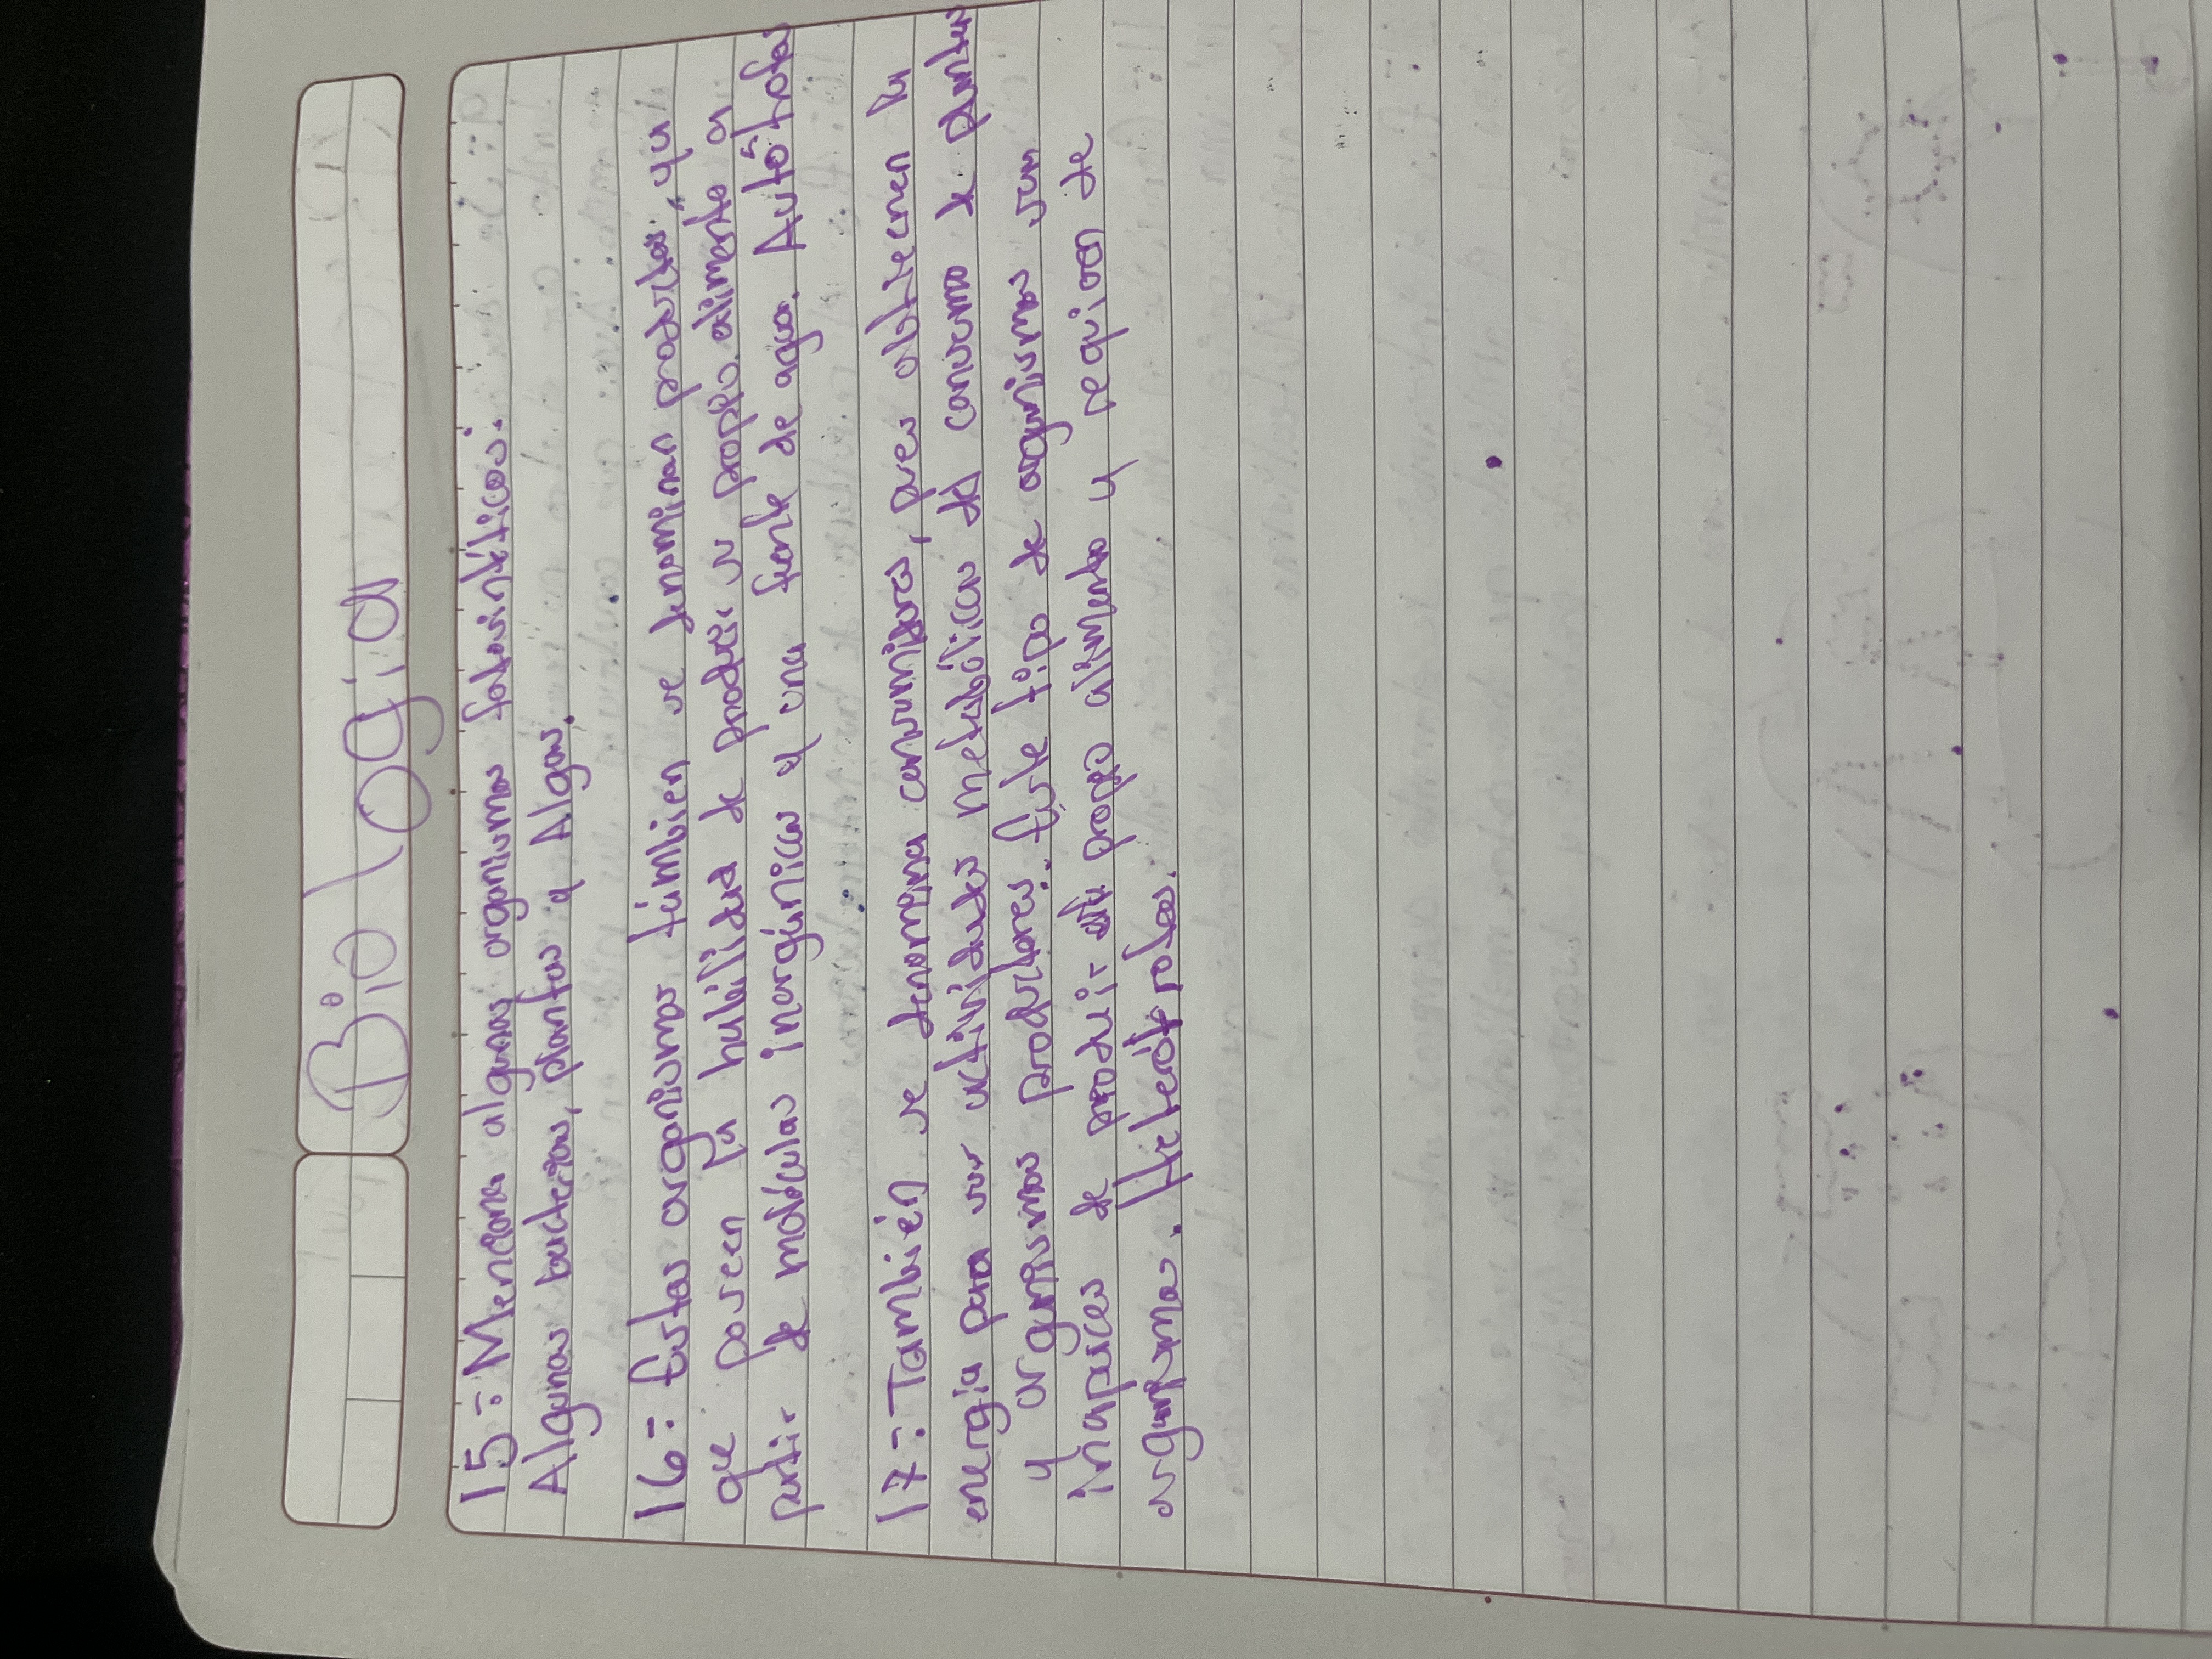 Biología
15-: Menciona algunos organismos fotosintéticos:
Algunas bacterias, plantas y Algas.
16-: Estos organismos también se denominan productos, ya
que poseen la habilidad de producir su propio alimento a
partir de moléculas inorgánicas y una fuente de agua. Autótrofos
17-: También se denomina consumidores, pues obtienen la
energía para sus actividades metabólicas del consumo de plantas
y organismos productores. Este tipo de organismos son
incapaces de producir su propio alimento y requieren de
organismos. Heterótrofos.